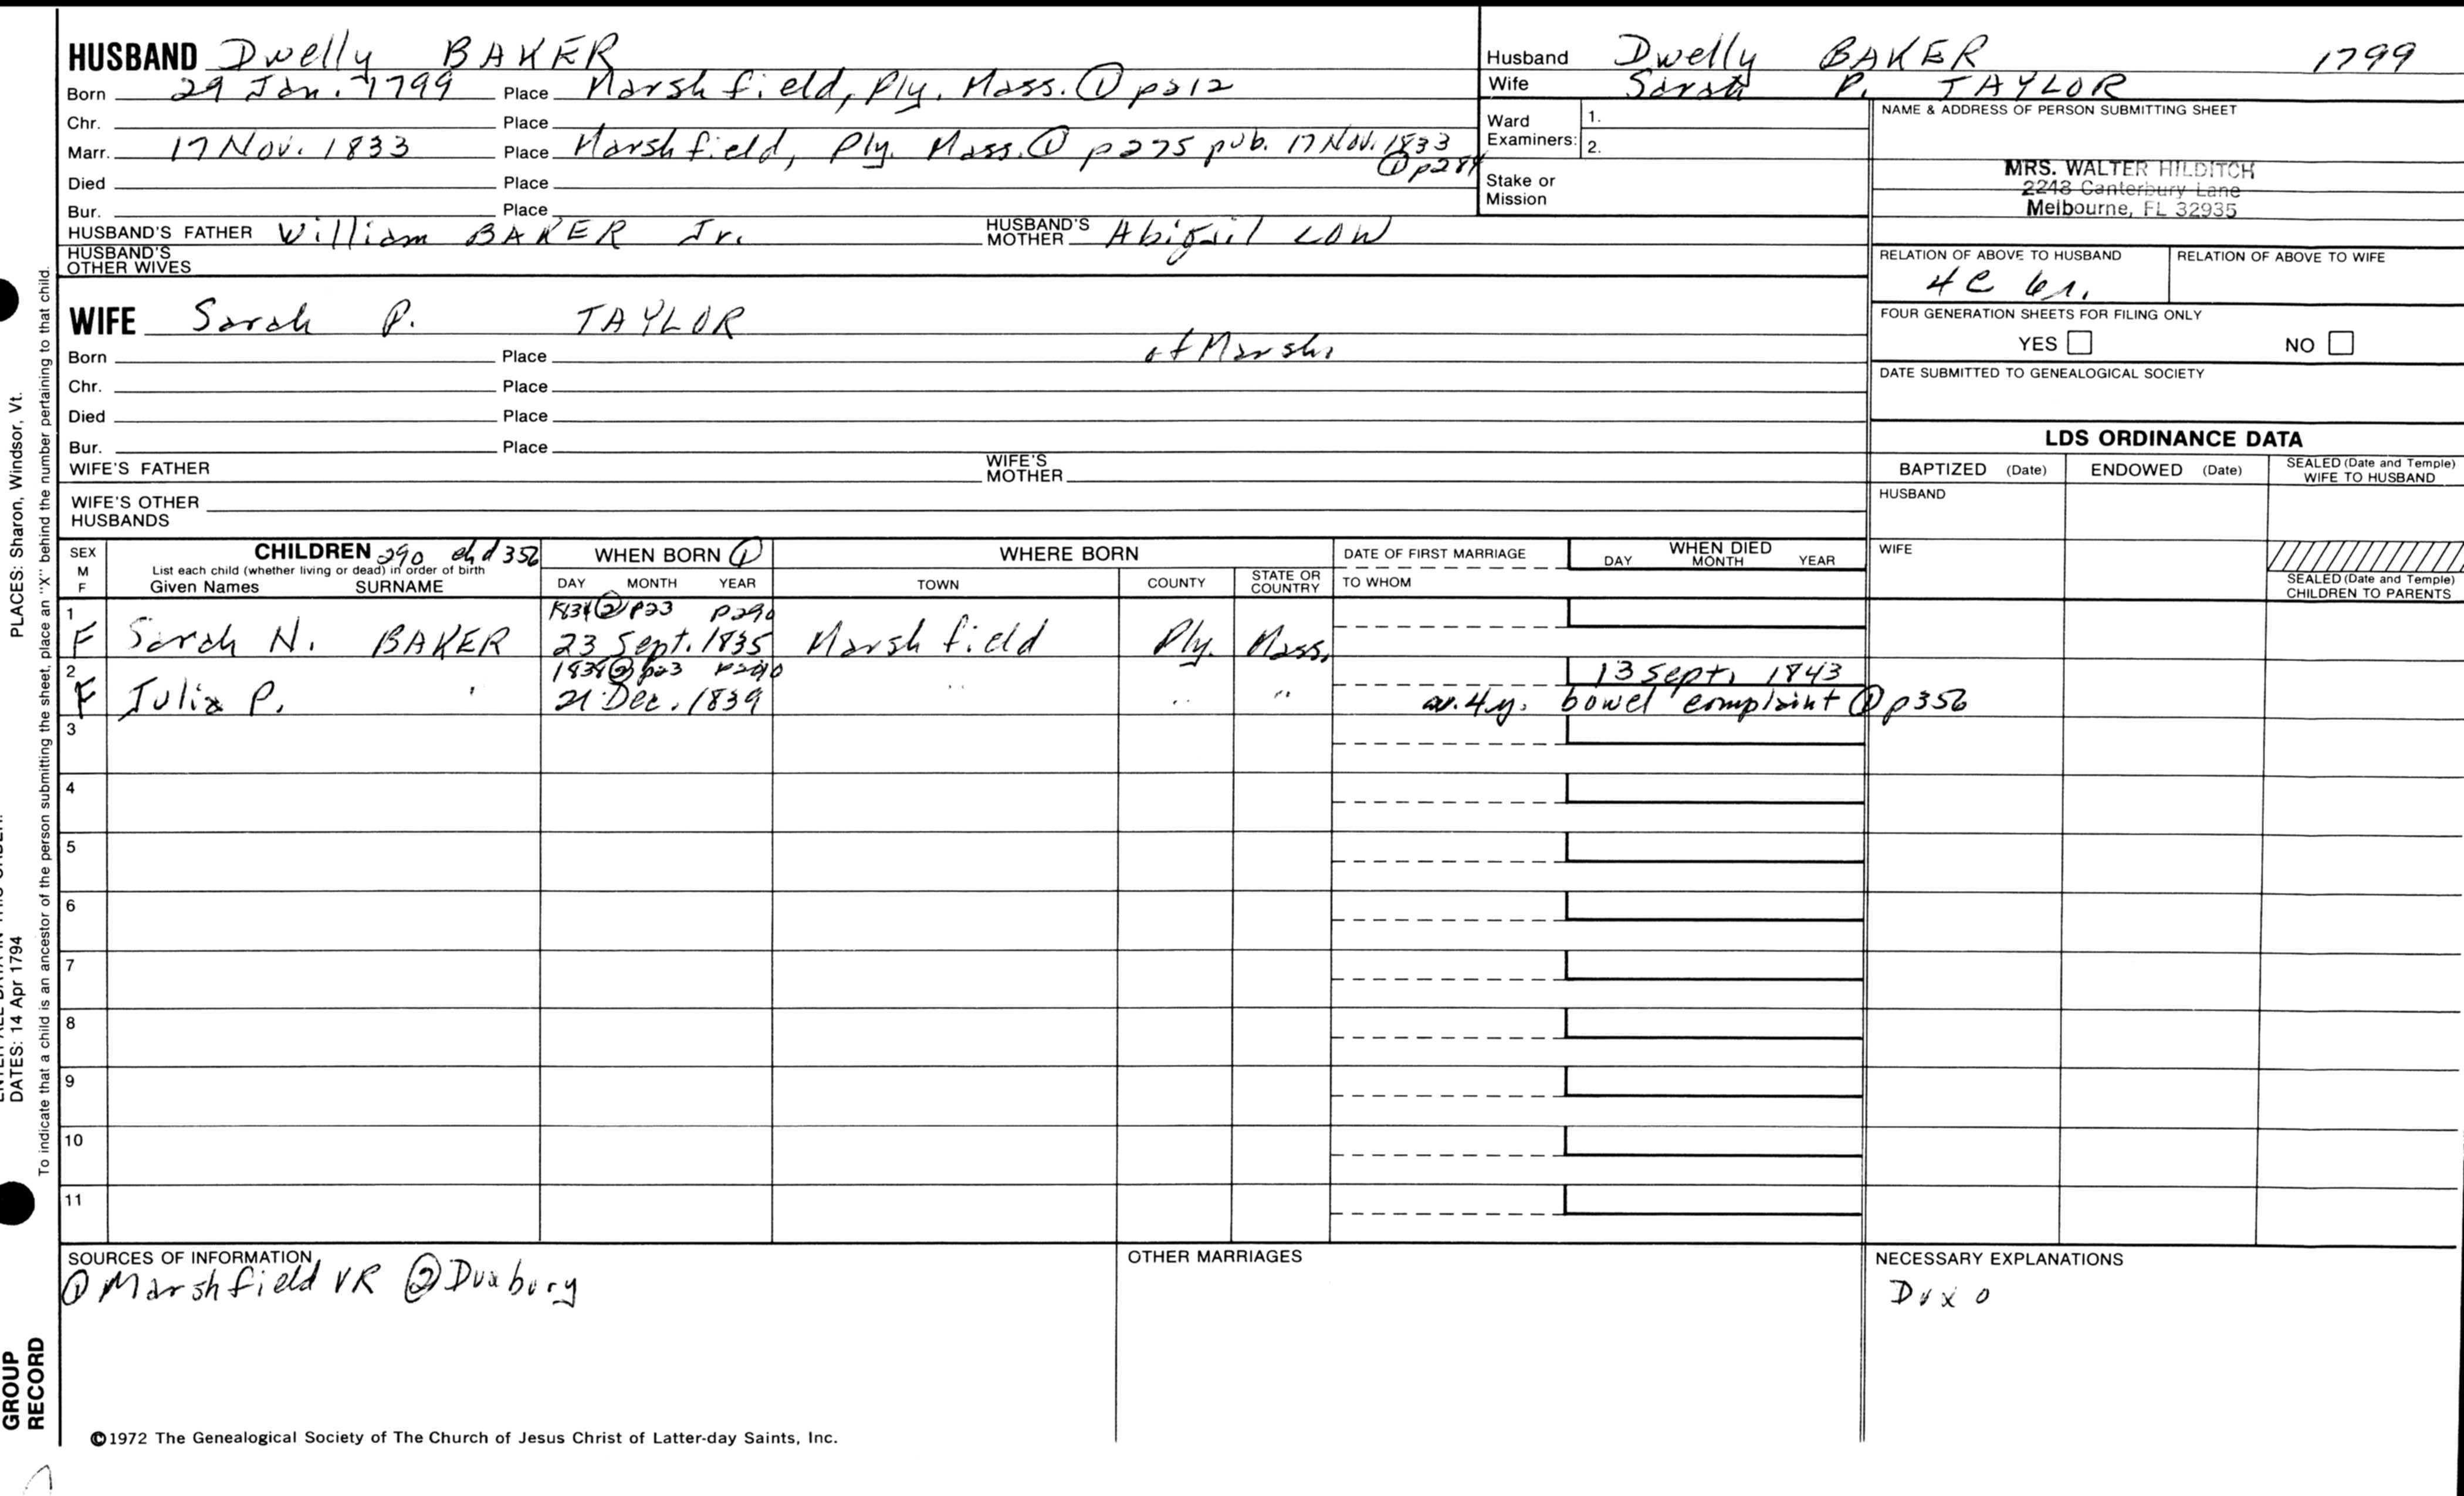 HUSBAND Dwelly BAKER
Born 29 Jan. 1799 Place Marshfield, Ply. Mass. ① p212
Chr. Place
Marr. 17 Nov. 1833 Place Marshfield, Ply. Mass. ① p275 pub. 17 Nov. 1833
① p284
Died Place
Bur. Place
HUSBAND'S FATHER William BAKER Jr. HUSBAND'S MOTHER Abigail LOW
HUSBAND'S OTHER WIVES
Husband Dwelly BAKER 1799
Wife Sarah P. TAYLOR
Ward Examiners: 1.
2.
Stake or Mission
NAME & ADDRESS OF PERSON SUBMITTING SHEET
MRS. WALTER HILDITCH
2248 Canterbury Lane
Melbourne, FL 32935
RELATION OF ABOVE TO HUSBAND RELATION OF ABOVE TO WIFE
4C 6r.
FOUR GENERATION SHEETS FOR FILING ONLY
YES NO
DATE SUBMITTED TO GENEALOGICAL SOCIETY
WIFE Sarah P. TAYLOR
Born Place of Marsh.
Chr. Place
Died Place
Bur. Place
WIFE'S FATHER WIFE'S MOTHER
WIFE'S OTHER HUSBANDS
LDS ORDINANCE DATA
BAPTIZED (Date) ENDOWED (Date) SEALED (Date and Temple) WIFE TO HUSBAND
HUSBAND
WIFE
SEALED (Date and Temple) CHILDREN TO PARENTS
SEX M F
CHILDREN 290 ch d 356
List each child (whether living or dead) in order of birth
Given Names SURNAME
WHEN BORN ①
DAY MONTH YEAR
WHERE BORN
TOWN COUNTY STATE OR COUNTRY
DATE OF FIRST MARRIAGE
TO WHOM
WHEN DIED
DAY MONTH YEAR
1 ② p23 p290
F Sarah N. BAKER 23 Sept. 1835 Marshfield Ply. Mass.
2 1838 ② p23 p290 13 Sept. 1843
F Julia P. " 21 Dec. 1839 " " " 4 y. bowel complaint ① p356
3
4
5
6
7
8
9
10
11
SOURCES OF INFORMATION
① Marshfield VR ② Duxbury
OTHER MARRIAGES
NECESSARY EXPLANATIONS
Dux 0
©1972 The Genealogical Society of The Church of Jesus Christ of Latter-day Saints, Inc.
PLACES: Sharon, Windsor, Vt.
DATES: 14 Apr 1794
To indicate that a child is an ancestor of the person submitting the sheet, place an "X" behind the number pertaining to that child.
GROUP
RECORD